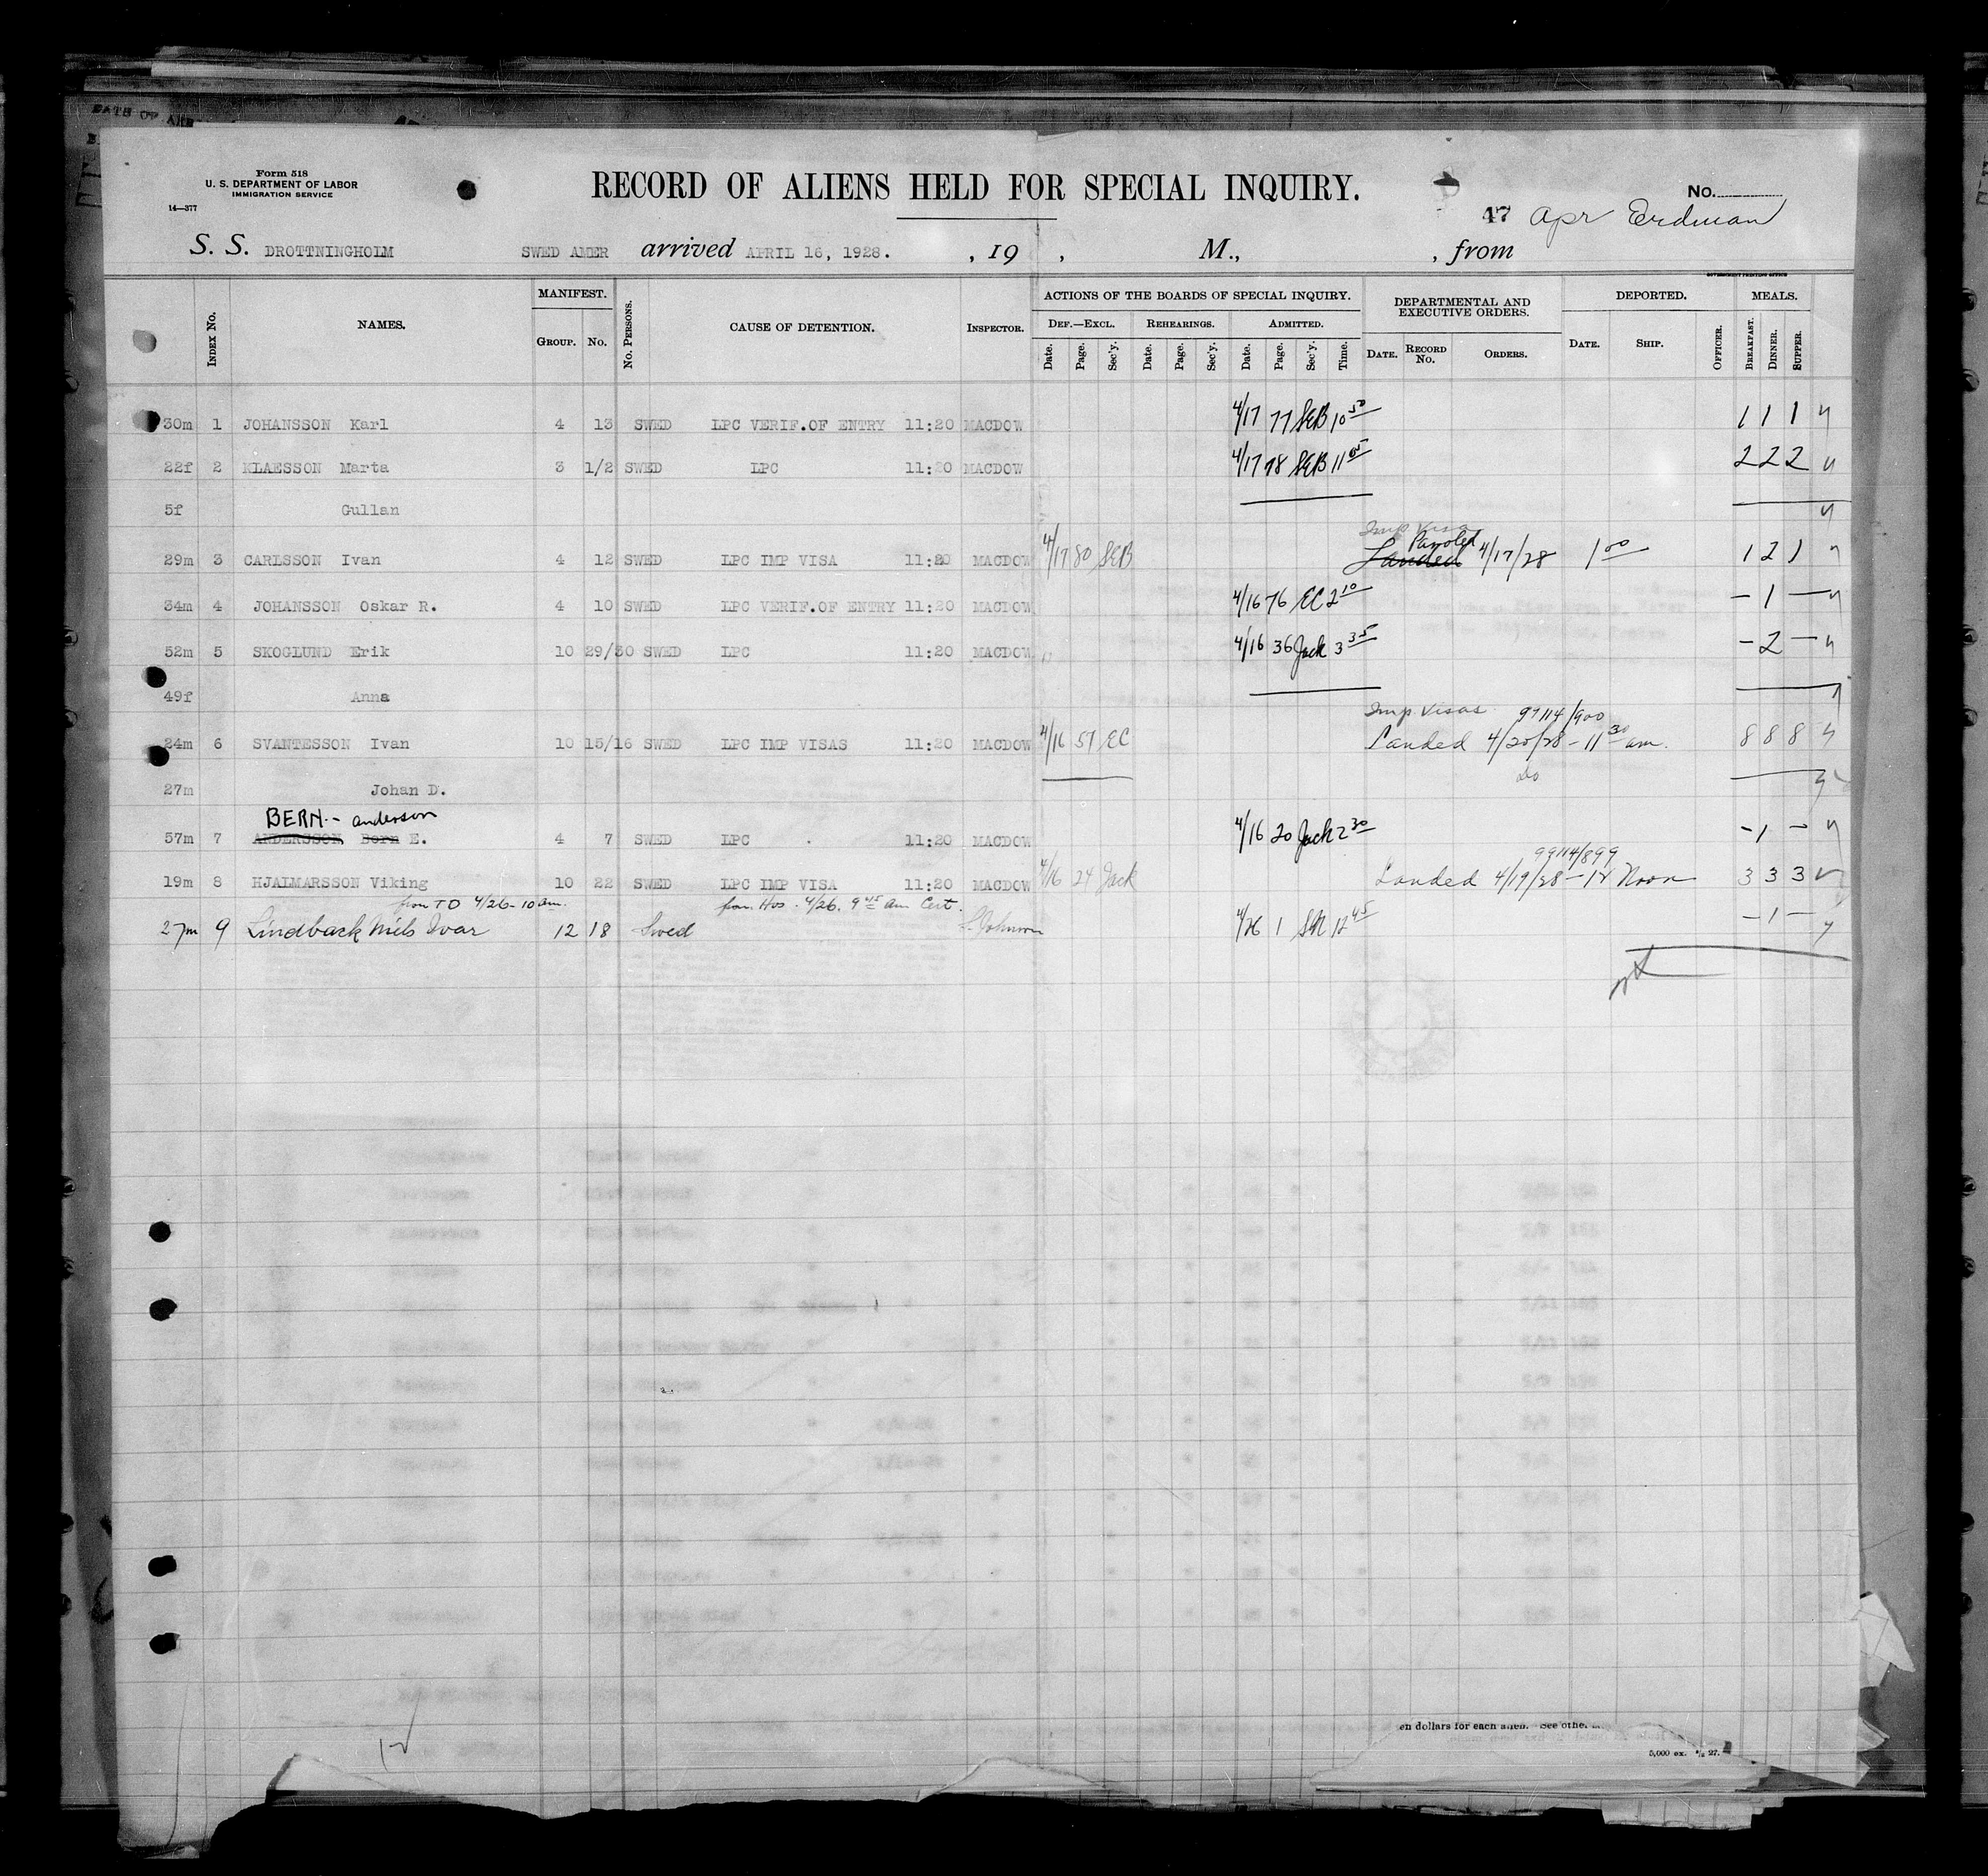 Form 518
U. S. DEPARTMENT OF LABOR
IMMIGRATION SERVICE
14—377
RECORD OF ALIENS HELD FOR SPECIAL INQUIRY.
No.
47 Apr Erdman
S. S. DROTTNINGHOLM SWED AMER arrived APRIL 16, 1928. , 19 , M., , from
GOVERNMENT PRINTING OFFICE
INDEX No. NAMES. MANIFEST. GROUP. No. No. PERSONS. CAUSE OF DETENTION. INSPECTOR. ACTIONS OF THE BOARDS OF SPECIAL INQUIRY. DEPARTMENTAL AND EXECUTIVE ORDERS. DEPORTED. MEALS.
DEF.—EXCL. REHEARINGS. ADMITTED.
Date. Page. Sec'y. Date. Page. Sec'y. Date. Page. Sec'y. Time. DATE. RECORD No. ORDERS. DATE. SHIP. OFFICER. BREAKFAST. DINNER. SUPPER.
30m 1 JOHANSSON Karl 4 13 SWED LPC VERIF.OF ENTRY 11:20 MACDOW 4/17 77 SEB 10 50 1 1 1
22f 2 KLAESSON Marta 3 1/2 SWED LPC 11:20 MACDOW 4/17 78 SEB 11 05 2 2 2
5f Gullan
Imp Visa
Paroled
29m 3 CARLSSON Ivan 4 12 SWED LPC IMP VISA 11:20 MACDOW 4/17 80 SEB Landed 4/17/28 1 00 1 2 1
34m 4 JOHANSSON Oskar R. 4 10 SWED LPC VERIF.OF ENTRY 11:20 MACDOW 4/16 76 EC 2 10 – 1 –
52m 5 SKOGLUND Erik 10 29/30 SWED LPC 11:20 MACDOW 4/16 36 Jack 3 35 – 2 –
49f Anna
Imp. Visas 99114/900
24m 6 SVANTESSON Ivan 10 15/16 SWED LPC IMP VISAS 11:20 MACDOW 4/16 57 EC Landed 4/20/28 – 11 30 am. 8 8 8
27m Johan D. do
BERN.- anderson
57m 7 ANDERSSON Bern E. 4 7 SWED LPC 11:20 MACDOW 4/16 20 Jack 2 30 – 1 –
99114/899
19m 8 HJALMARSSON Viking 10 22 SWED LPC IMP VISA 11:20 MACDOW 4/16 24 Jack Landed 4/19/28 – 12 Noon 3 3 3
from TD 4/26 - 10 am. from Hos. 4/26. 9 45 am Cert.
27m 9 Lindback Nils Ivar 12 18 Swed Johnson 4/26 1 12 45 – 1 –
en dollars for each alien. See othe
5,000 ex.